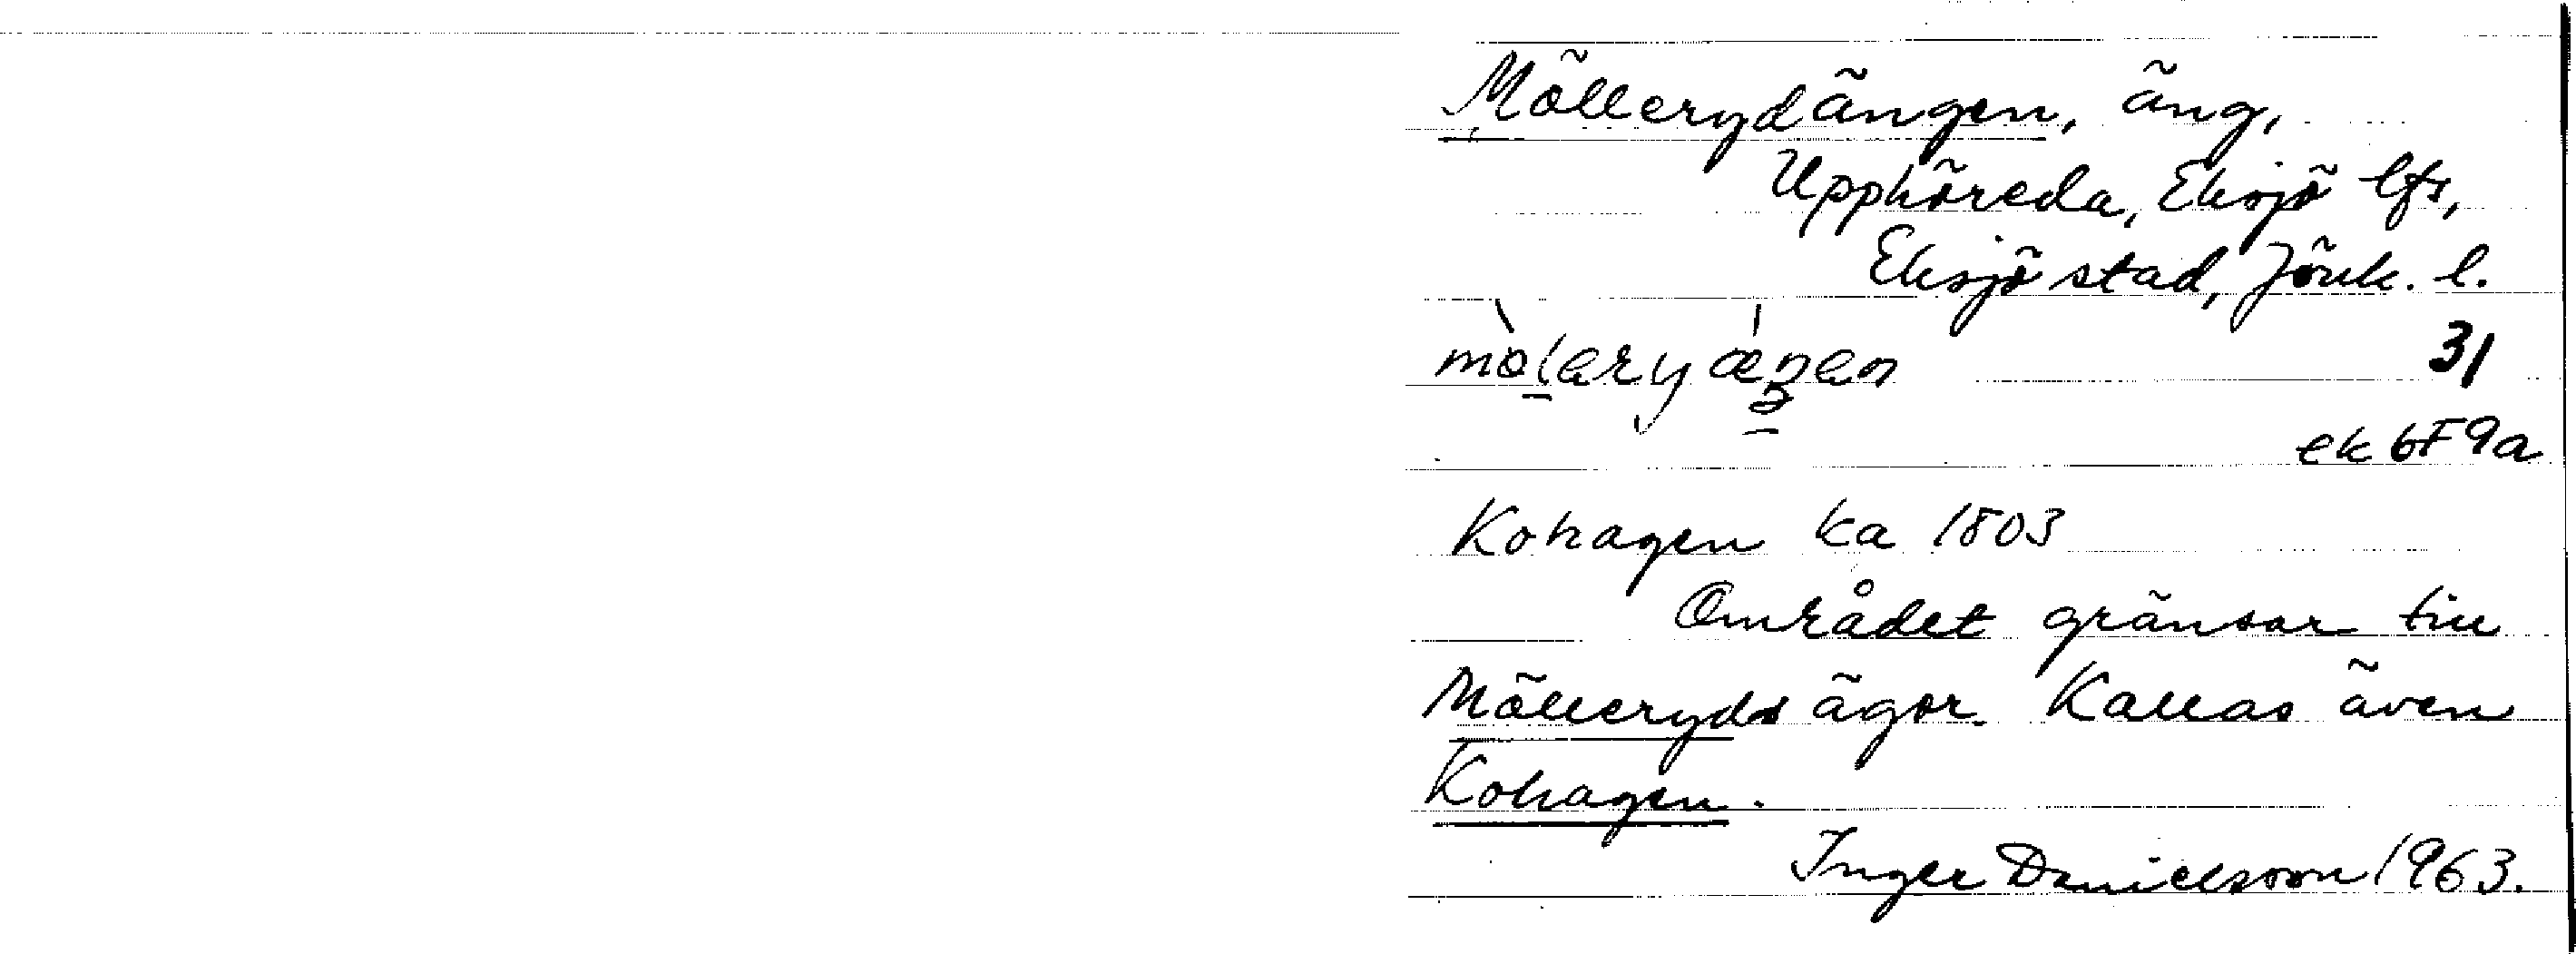 Möllerydängen, äng,
Upphöreda, Eksjö lfs,
Eksjö stad, Jönk. l.
31
ek 6F 9a
Kohagen ka 1803
Området gränsar till
Mölleryds ägor. Kallas även
Kohagen.
Inger Danielsson 1963.